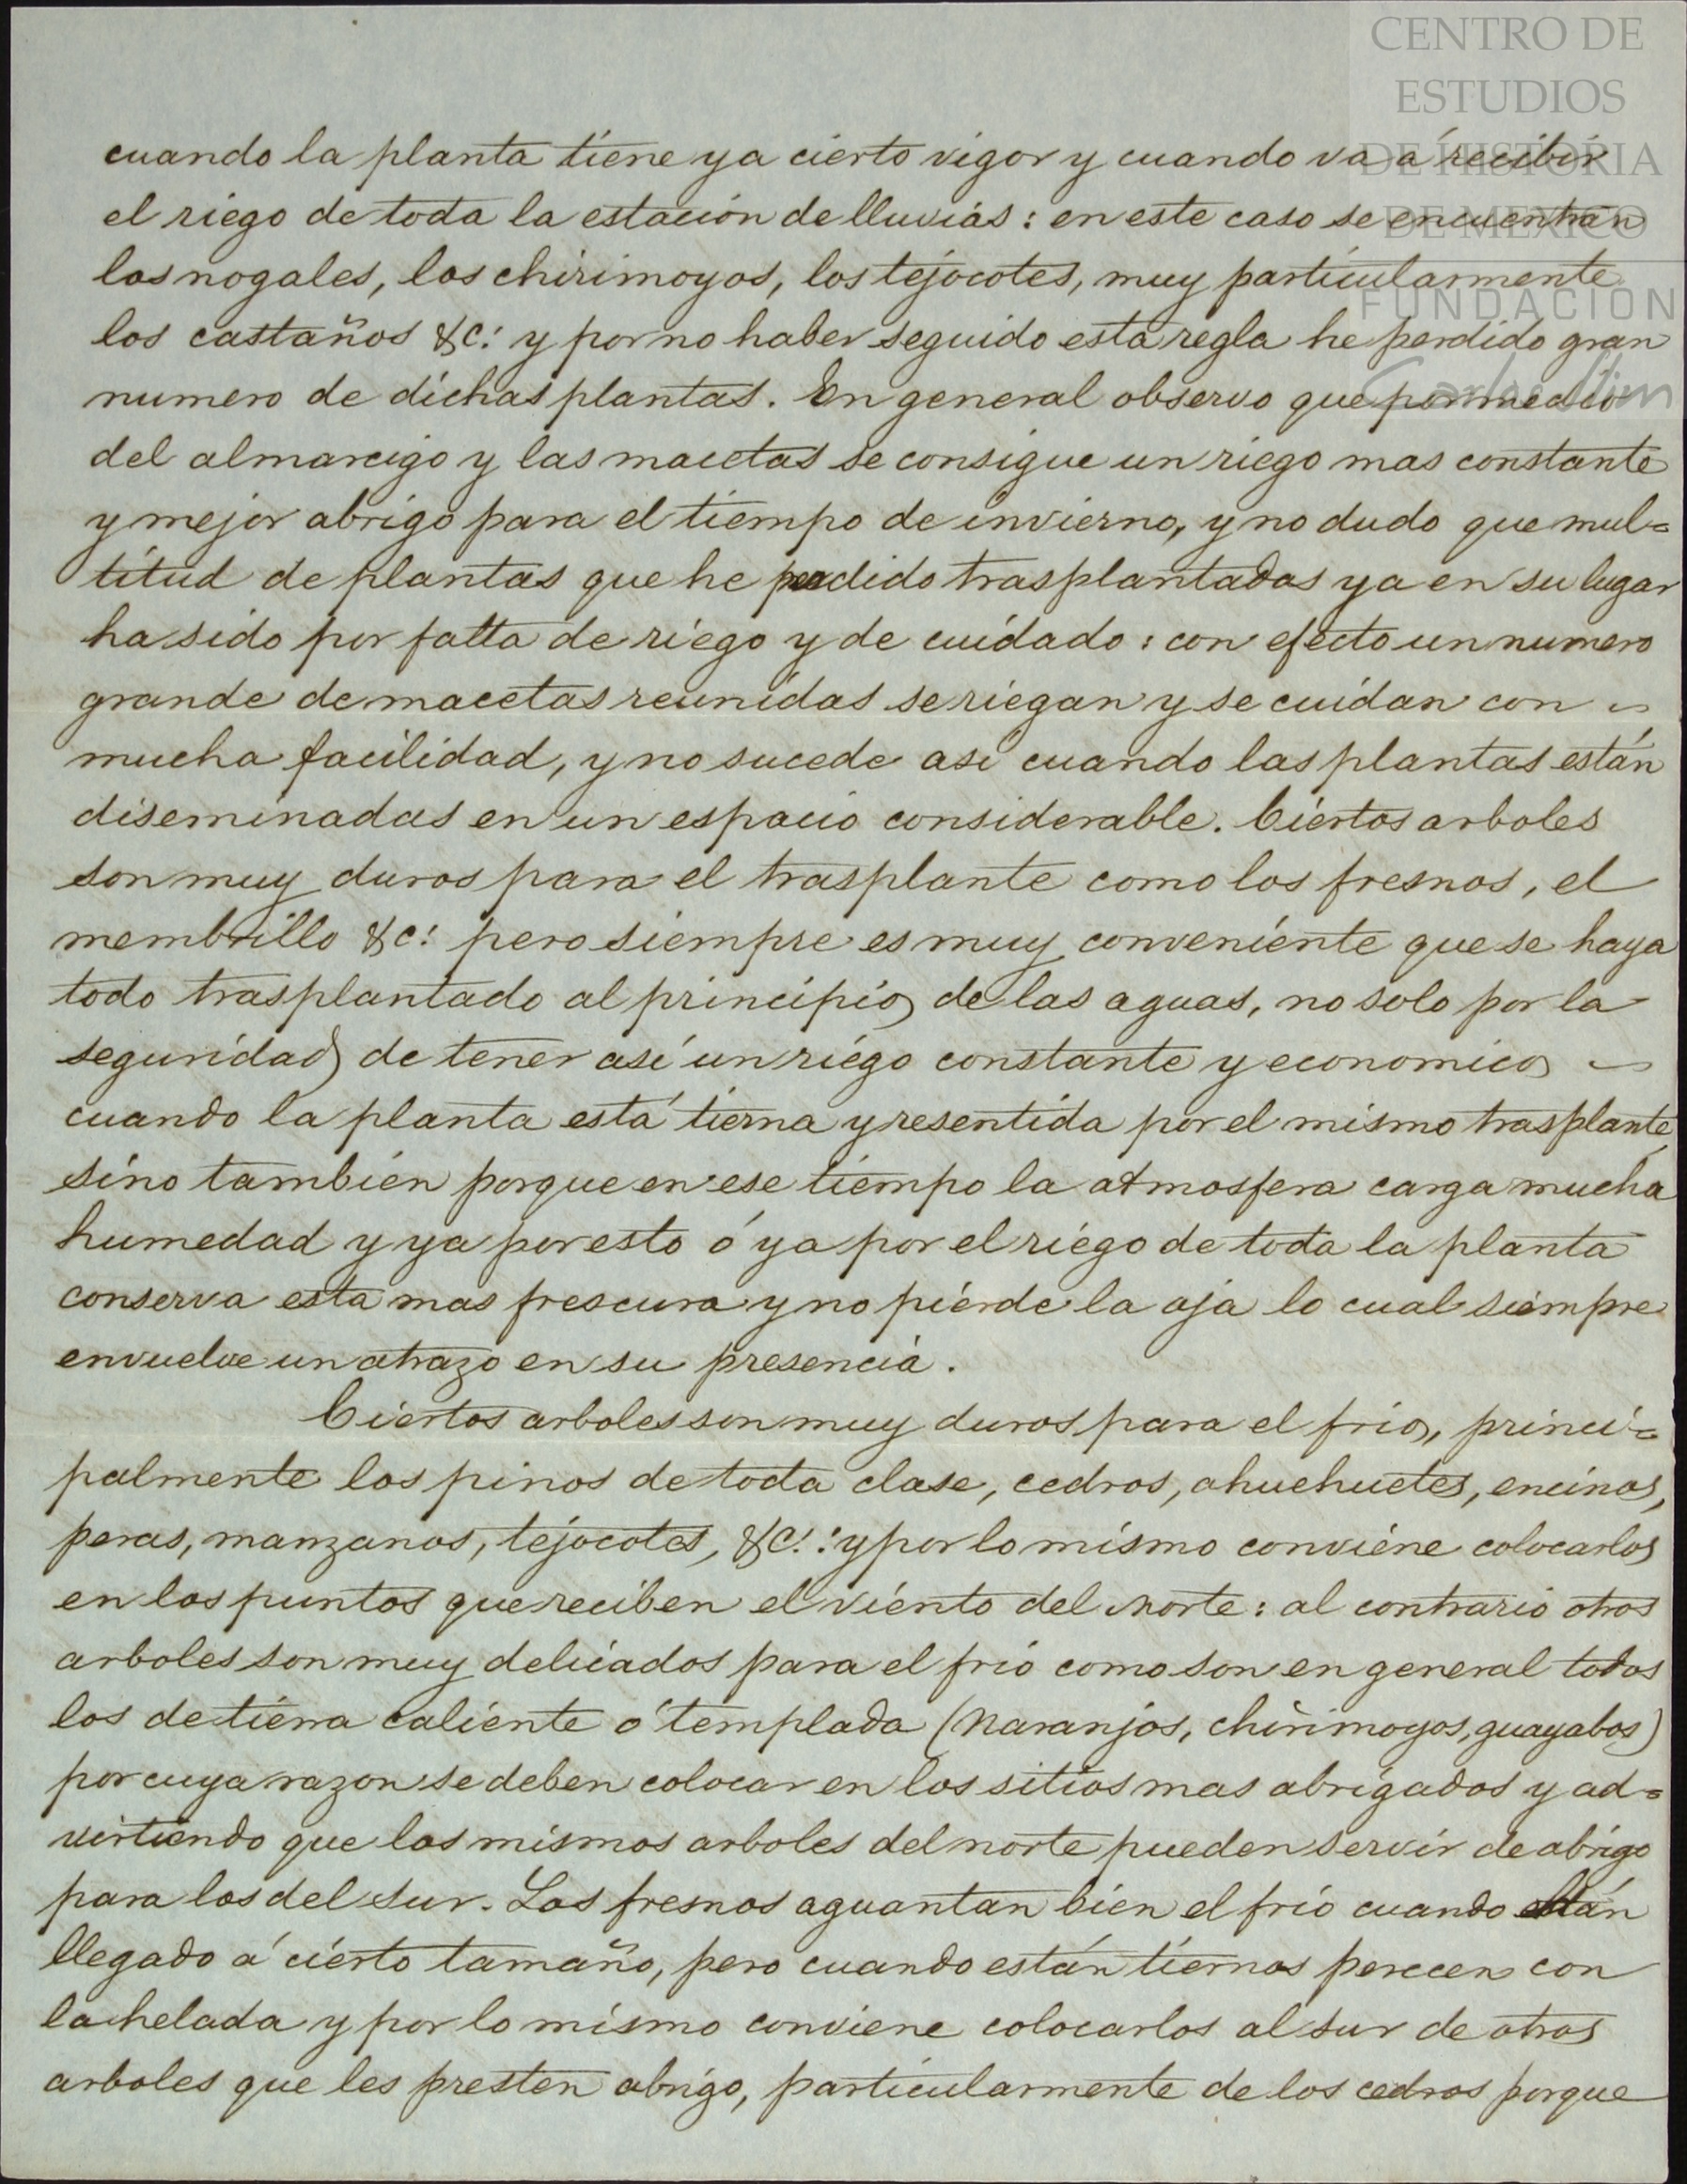 CENTRO DE
ESTUDIOS
DE HISTORIA
DE MÉXICO
FUNDACIÓN
Carlos Slim
cuando la planta tiene ya cierto vigor y cuando va á recibir
el riego de toda la estación de lluvias: en este caso se encuentran
los nogales, los chirimoyos, los tejocotes, muy particularmente
los castaños &c: y por no haber seguido esta regla he perdido gran
numero de dichas plantas. En general observo que por medio
del almarcigo y las macetas se consigue un riego mas constante
y mejor abrigo para el tiempo de invierno, y no dudo que mul=
titud de plantas que he perdido trasplantadas ya en su lugar
ha sido por falta de riego y de cuidado: con efecto un numero
grande de macetas reunidas se riegan y se cuidan con
mucha facilidad, y no sucede asi cuando las plantas están
diseminadas en un espacio considerable. Ciertos arboles
son muy duros para el trasplante como los fresnos, el
membrillo &c: pero siempre es muy conveniente que se haya
todo trasplantado al principio de las aguas, no solo por la
seguridad de tener así un riego constante y economico
cuando la planta está tierna y resentida por el mismo trasplante,
sino tambien porque en ese tiempo la atmosfera carga mucha
humedad y ya por esto ó ya por el riego de toda la planta
conserva esta mas frescura y no pierde la oja lo cual siempre
envuelve un atrazo en su presencia.
Ciertos arboles son muy duros para el frio, princi=
palmente los pinos de toda clase, cedros, ahuehuetes, encinos,
peras, manzanos, tejocotes, &c.: y por lo mismo conviene colocarlos
en los puntos que reciben el viento del norte: al contrario otros
arboles son muy delicados para el frio como son en general todos
los de tierra caliente ó templada (naranjos, chirimoyos, guayabos)
por cuya razon se deben colocar en los sitios mas abrigados y ad=
virtiendo que los mismos arboles del norte pueden servir de abrigo
para los del sur. Los fresnos aguantan bien el frio cuando
llegado á cierto tamaño, pero cuando están tiernos perecen con
la helada y por lo mismo conviene colocarlos al sur de otros
arboles que les presten abrigo, particularmente de los cedros porque